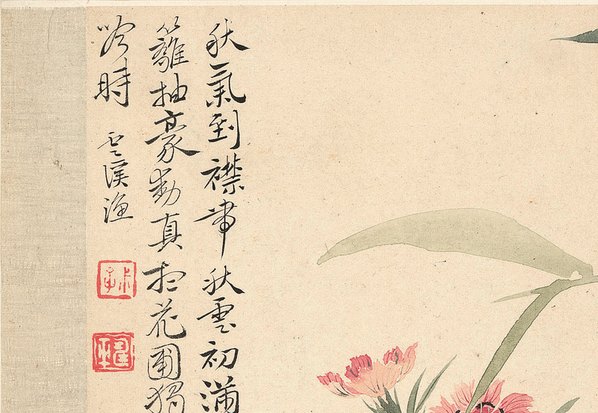 秋氣到襟帶秋雲初滿
籬抽豪動真想花圃獨
吟時
雲溪漁